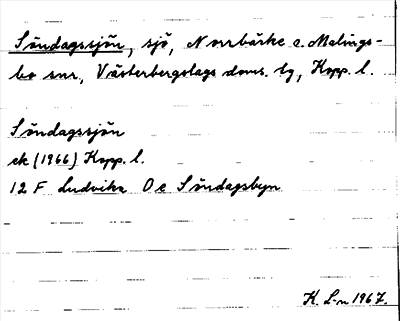 Söndagssjön, sjö, Norrbärke o. Malings-
bo snr, Västerbergslags doms. lg, Kopp. l.
Söndagssjön
ek (1966) Kopp. l.
12 F Ludvika 0 e Söndagsbyn
K. L-n 1967.